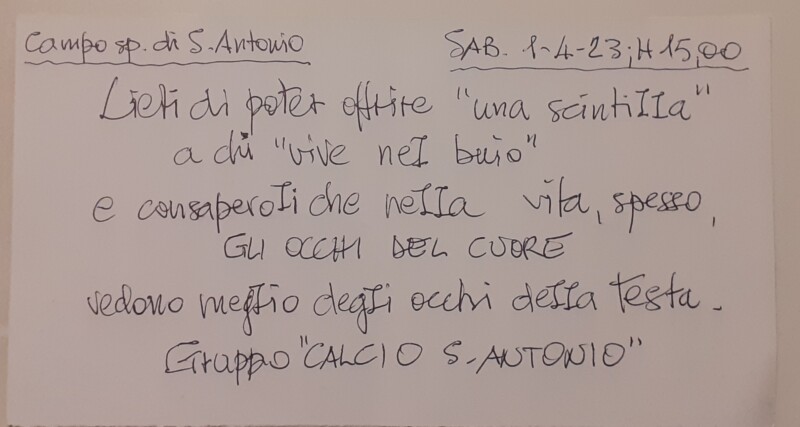 Campo sp. di S. Antonio
SAB. 1-4-23; H 15,00
Lieti di poter offrire "una scintilla"
a chi "vive nel buio"
e consapevoli che nella vita, spesso,
GLI OCCHI DEL CUORE
vedono meglio degli occhi della testa.
Gruppo "CALCIO S. ANTONIO"